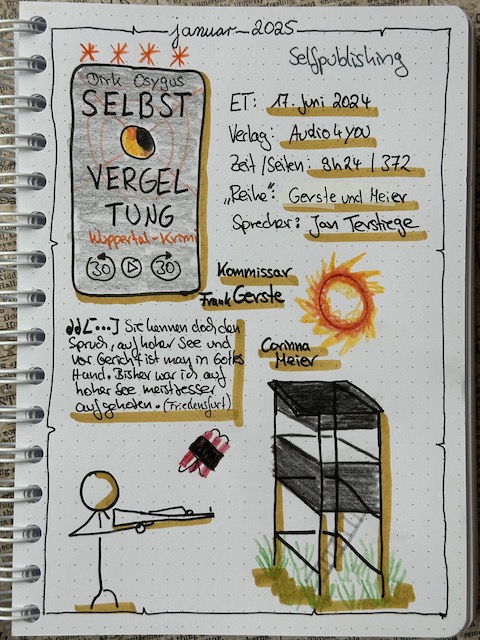 Januar 2025
Selfpublishing
Dirk Osygus
SELBST
VERGEL
TUNG
Wuppertal-Krimi
30 30
ET: 17. Juni 2024
Verlag: Audio4you
Zeit/Seiten: 8h24 / 372
„Reihe“: Gerste und Meier
Sprecher: Jan Terstiege
Kommissar
Frank Gerste
Corinna
Meier
[...] Sie kennen doch den
Spruch, auf hoher See und
vor Gericht ist man in Gottes
Hand. Bisher war ich auf
hoher See meist besser
aufgehoben. (Friedensfurt)